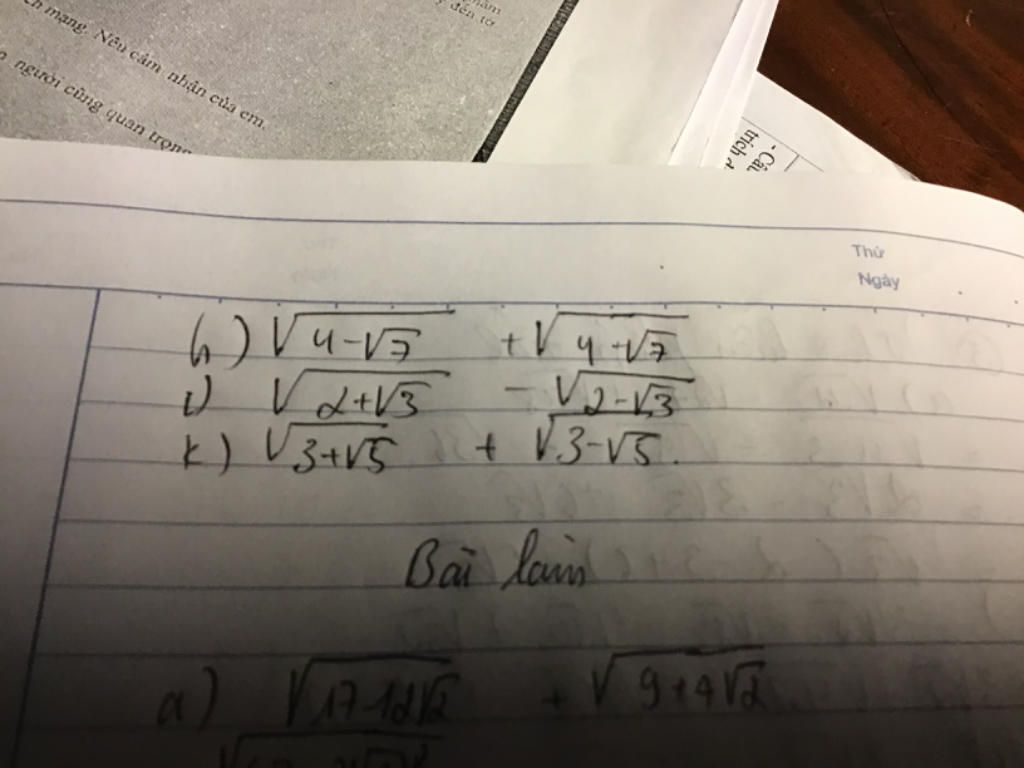 mạng. Nêu cảm nhận của em.
người cũng quan trọng
đến tờ
Thứ
Ngày
h) √(4-√7) + √(4+√7)
i) √(2+√3) - √(2-√3)
k) √(3+√5) + √(3-√5).
Bài làm
a) √(17-12√2) + √(9+4√2)